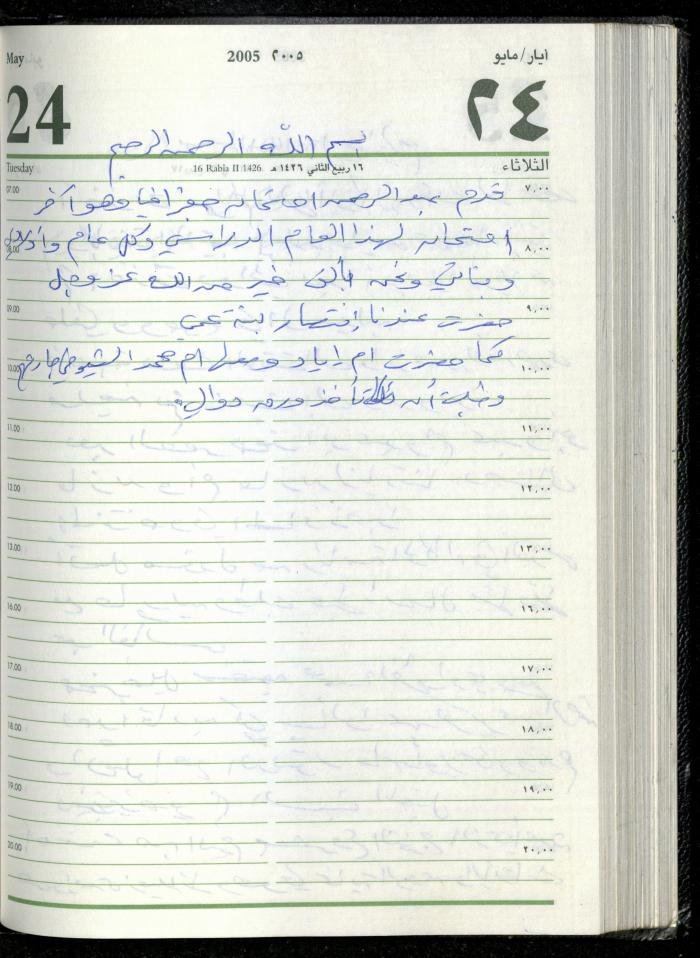 May 2005 ٢٠٠٥ أيار/مايو
24 ٢٤
بسم الله الرحمن الرحيم
Tuesday 16 Rabia II 1426 ١٦ ربيع الثاني ١٤٢٦ هـ الثلاثاء
07.00 ٧,٠٠
قدم عبد الرحمن امتحان جغرافيا وهو آخر
08.00 ٨,٠٠
امتحان لهذا العام الدراسي وكل عام وأولادي
وبناتي ونحن بألف خير من الله عز وجل
09.00 ٩,٠٠
حضرت عندنا إنتصار ابنة عمي
10.00 ١٠,٠٠
كما حضرت ام اياد ومعها ام محمد الشيوخي
وطلبت أن تأخذ ورق دوالي.
11.00 ١١,٠٠
12.00 ١٢,٠٠
13.00 ١٣,٠٠
16.00 ١٦,٠٠
17.00 ١٧,٠٠
18.00 ١٨,٠٠
19.00 ١٩,٠٠
20.00 ٢٠,٠٠